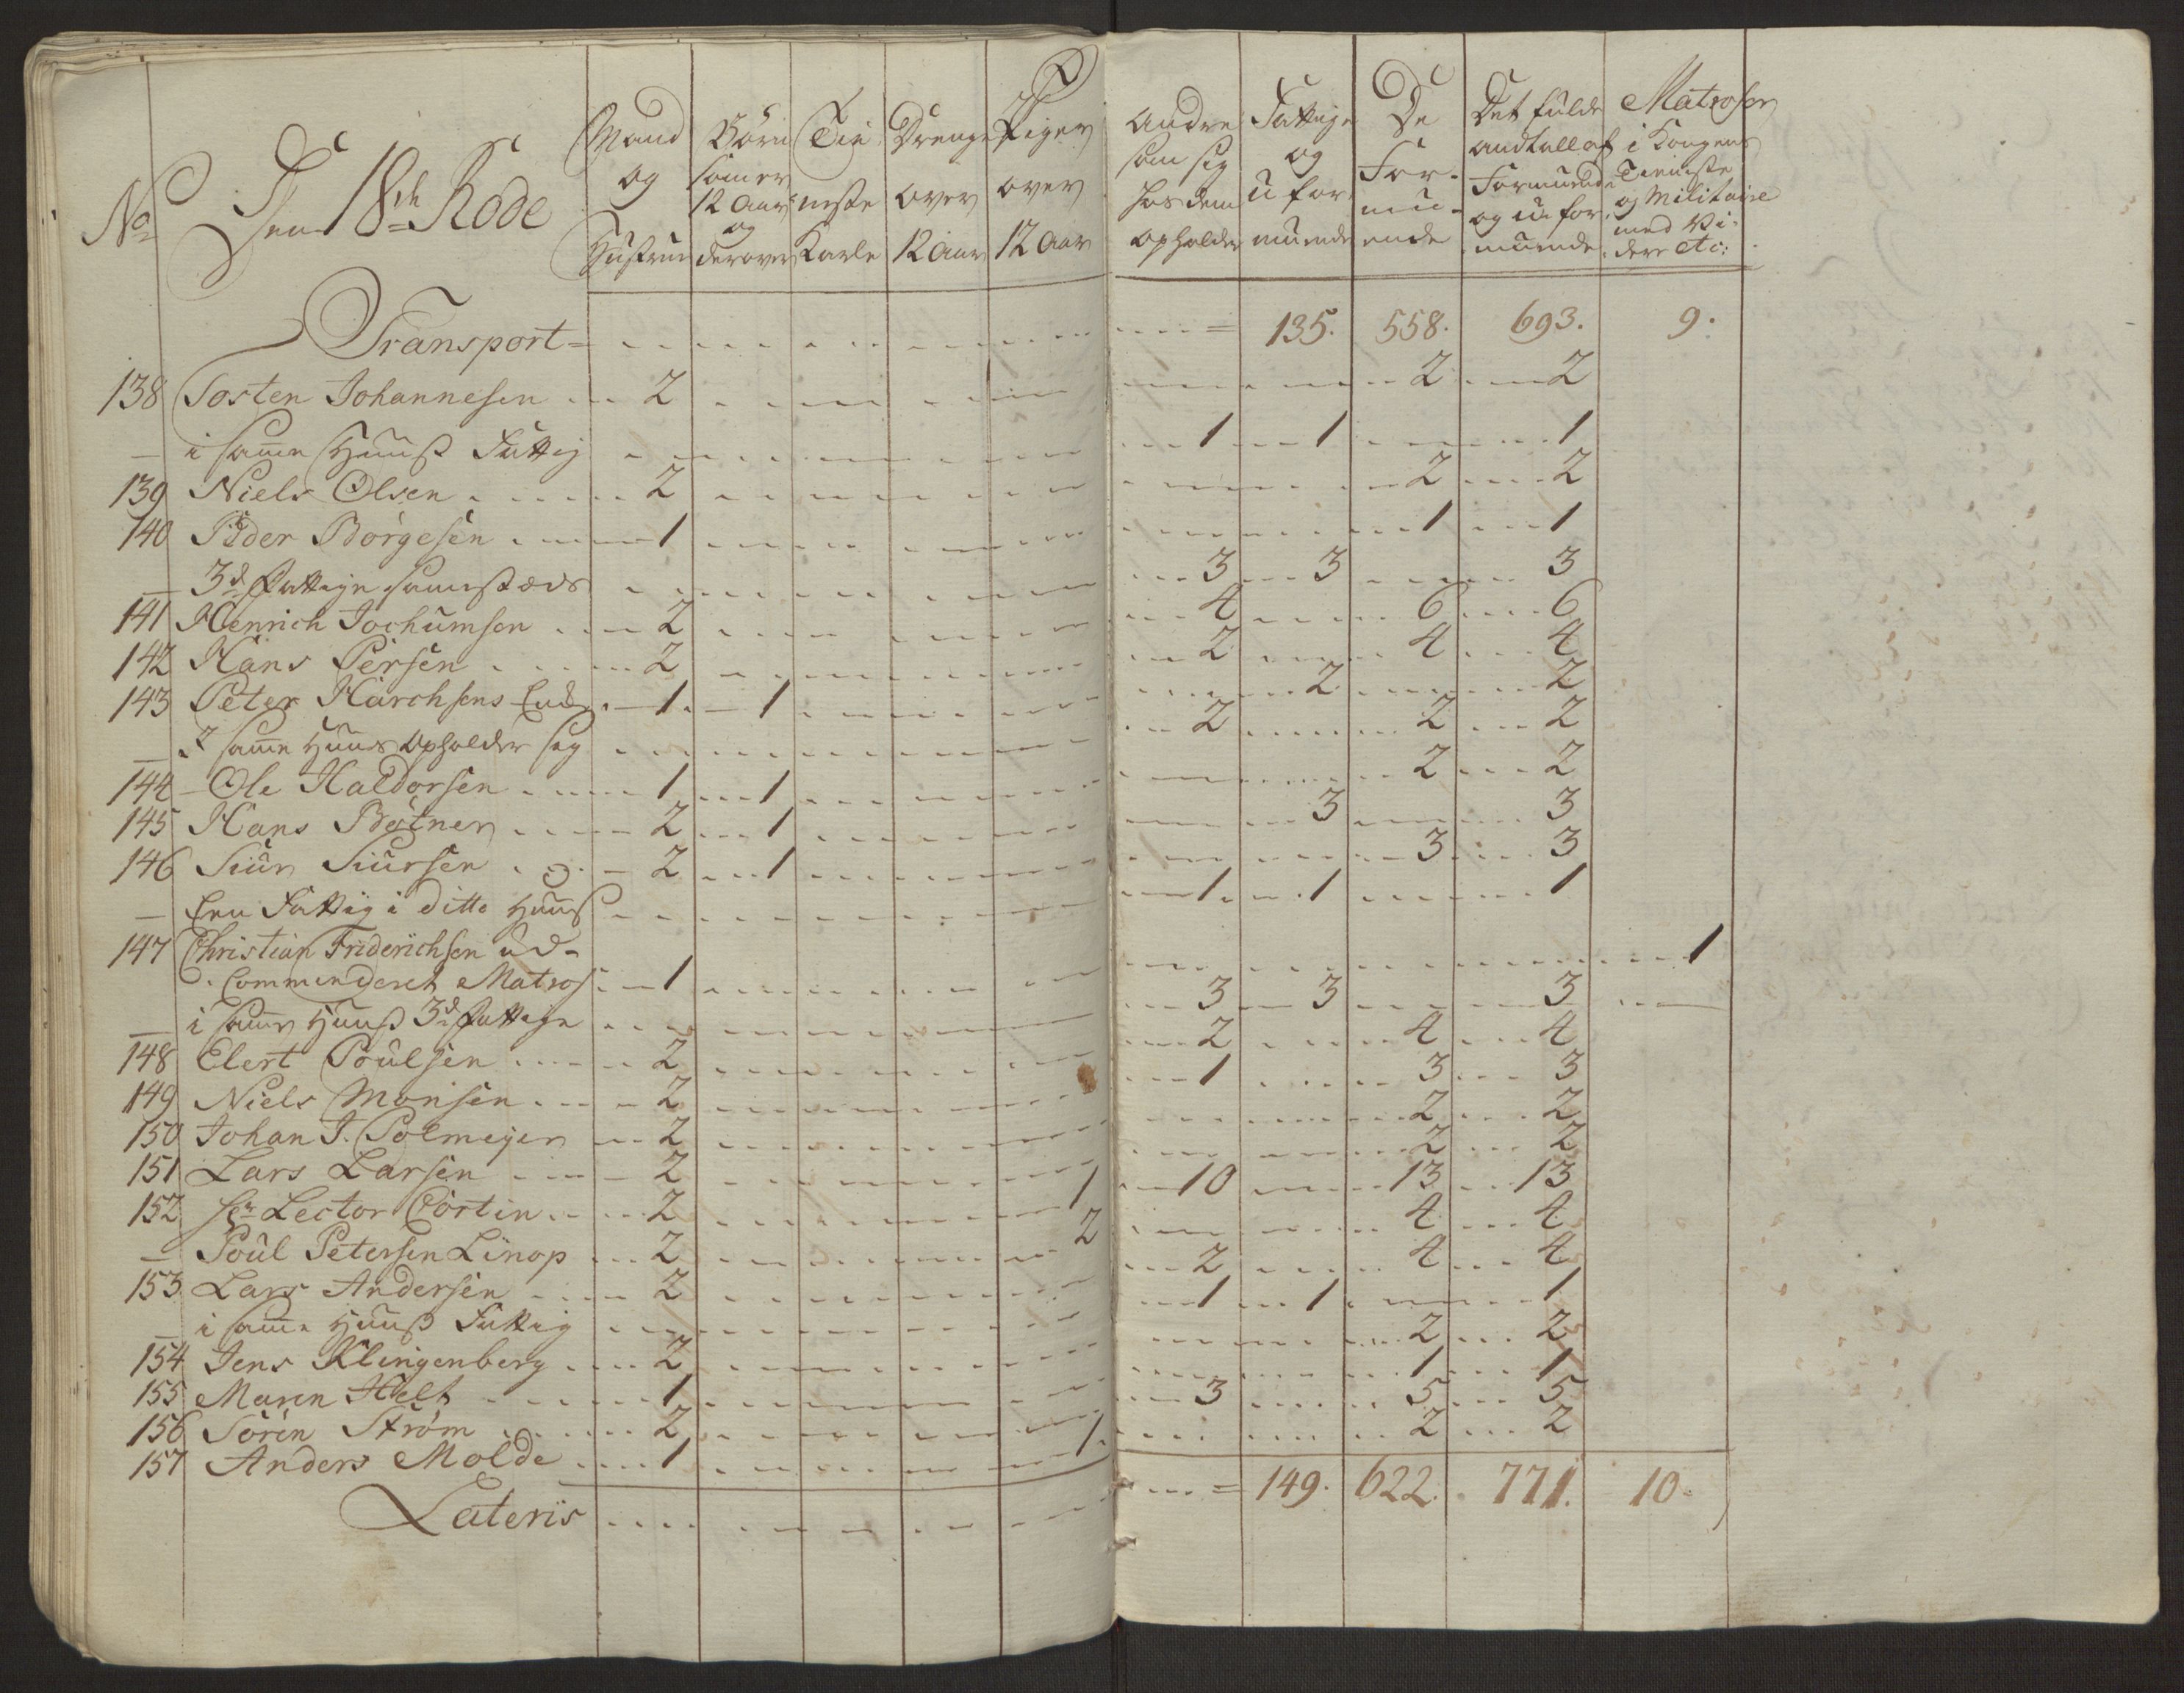 No Den 18de Rode | Mand og Hustrue | Börn som er 12 Aar og derover | Tieneste Karle | Drenge over 12 Aar | Piger over 12 Aar | Andre som sig hos dem opholder | Fattige og uformuende | De Formuende | Det fulde Andtall af Formuende og uformuende | Matroser i Kongens Tieneste og Militaire med Videre etc:
Transport = 135. 558. 693. 9.
138 Tosten Johannesen 2 2 2
i samme Huuß Fattig 1 1 1
139 Niels Olsen 2 2 2
140 Peder Börgesen 1 1 1
3de Fattige sammestæds 3 3 3
141 Henrich Jochumsen 2 4 6 6
142 Hans Persen 2 2 4 4
143 Peter Harchsens Enke 1 1 2 2
I samme Huus opholder sig 2 2 2
144 Ole Haldorsen 1 1 2 2
145 Hans Bötner 2 1 3 3
146 Siur Siursen 2 1 3 3
Een Fattig i ditto Huus 1 1 1
147 Christian Friderichsen ud-
Commenderet Matros 1 1
i samme Huuß 3de fattige 3 3 3
148 Elert Poulsen 2 2 4 4
149 Niels Monsen 2 1 3 3
150 Johan J. Polmeyer 2 2 2
151 Lars Larsen 2 2 2
152 Hr Lector Cortin 2 1 10 13 13
Poul Petersen Linop 2 2 4 4
153 Lars Andersen 2 2 4 4
i samme Huuß Fattig 1 1 1
154 Jens Klingenberg 2 2 2
155 Maren Helt 1 1 1
156 Sören Ström 2 3 5 5
157 Anders Molde 1 1. 2 2
Lateris = 149. 622. 771. 10.